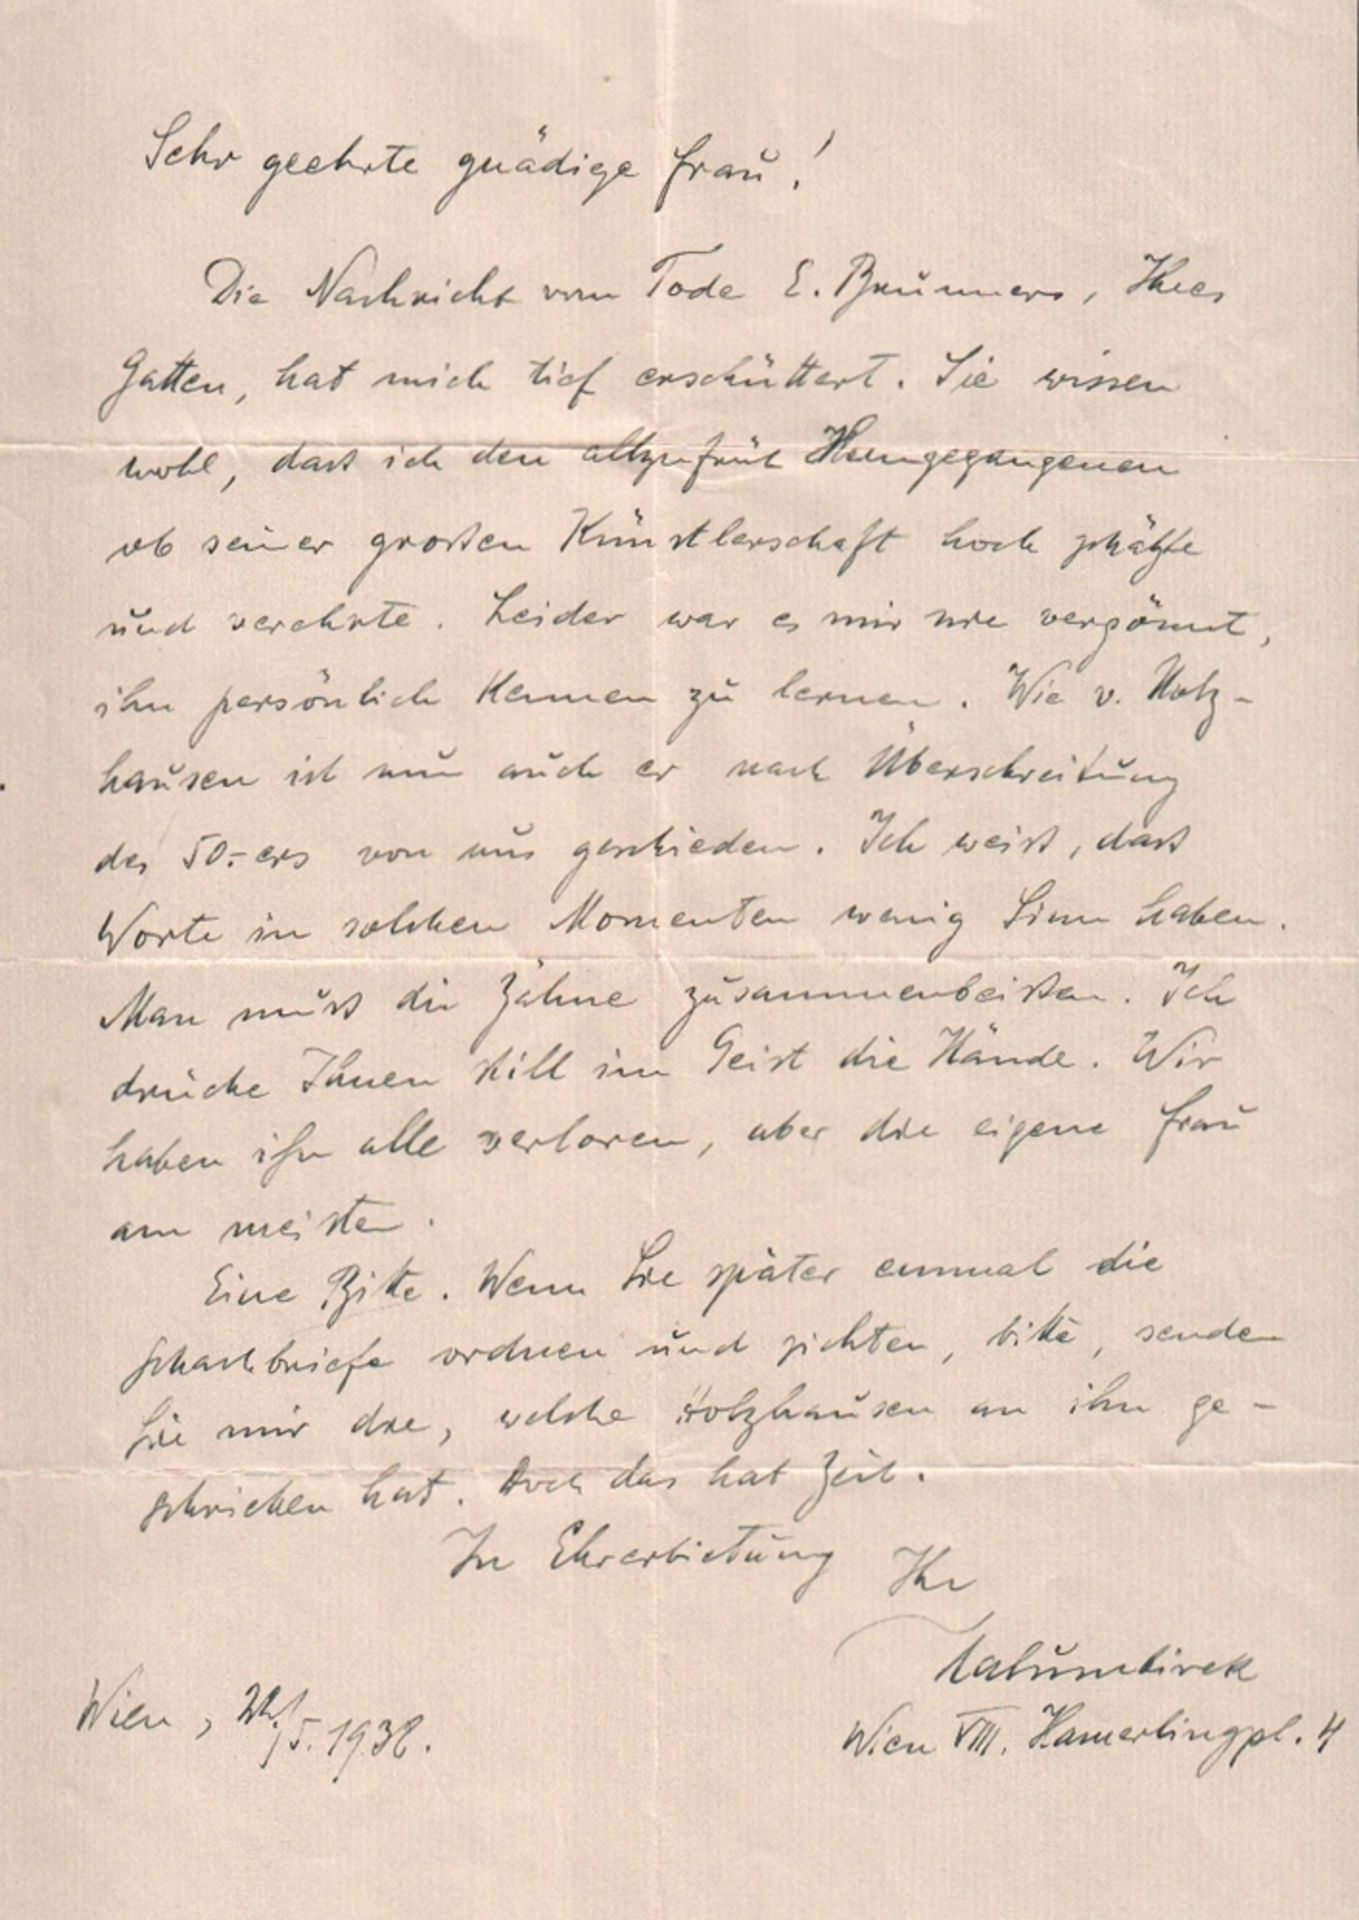 Sehr geehrte gnädige Frau!
Die Nachricht vom Tode E. Brunners, Ihres
Gatten, hat mich tief erschüttert. Sie wissen
wohl, dass ich den allzufrüh Heimgegangenen
ob seiner grossen Künstlerschaft hoch schätzte
und verehrte. Leider war es mir nie vergönnt,
ihn persönlich kennen zu lernen. Wie v. Holz-
hausen ist nun auch er nach Überschreitung
des 50.-ers von uns geschieden. Ich weiss, dass
Worte in solchen Momenten wenig Sinn haben.
Man muss die Zähne zusammenbeissen. Ich
drücke Ihnen still im Geist die Hände. Wir
haben ihn alle verloren, aber die eigene Frau
am meisten.
Eine Bitte. Wenn Sie später einmal die
Schachbriefe ordnen und sichten, bitte, senden
Sie mir die, welche Holzhausen an ihn ge-
schrieben hat. Doch das hat Zeit.
In Ehrerbietung Ihr
Wien, 5. 1938.
Wien VIII. Hamerlingpl. 4